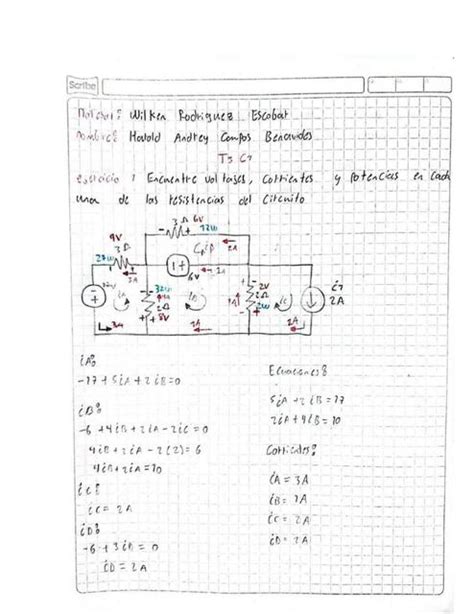 Scribe
Wilken Rodriguez Escobar
Nombre: Harold Andrey Campos Benavides
T3 C7
Ejercicio 1 Encuentre voltages, Corrientes y potencias en cada
una de las resistencias del Circuito
6V
3Ω 12W
9V
27W 3Ω
2A
3A
iA
iB
iC
32W
2Ω
8V
2V
2Ω
2W
1A
2A
i1
2A
3A
2A
iA:
-17+5iA+2iB=0
iB:
-6+4iB+2iA-2iC=0
4iB+2iA-2(2)=6
4iB+2iA=10
iC:
iC=2A
iD:
-6+3iD=0
iD=2A
Ecuaciones:
5iA+2iB=17
2iA+4iB=10
Corrientes:
iA=3A
iB=1A
iC=2A
iD=2A